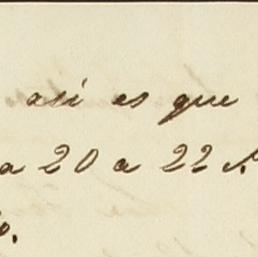 asi es que
a 20 a 22
o.